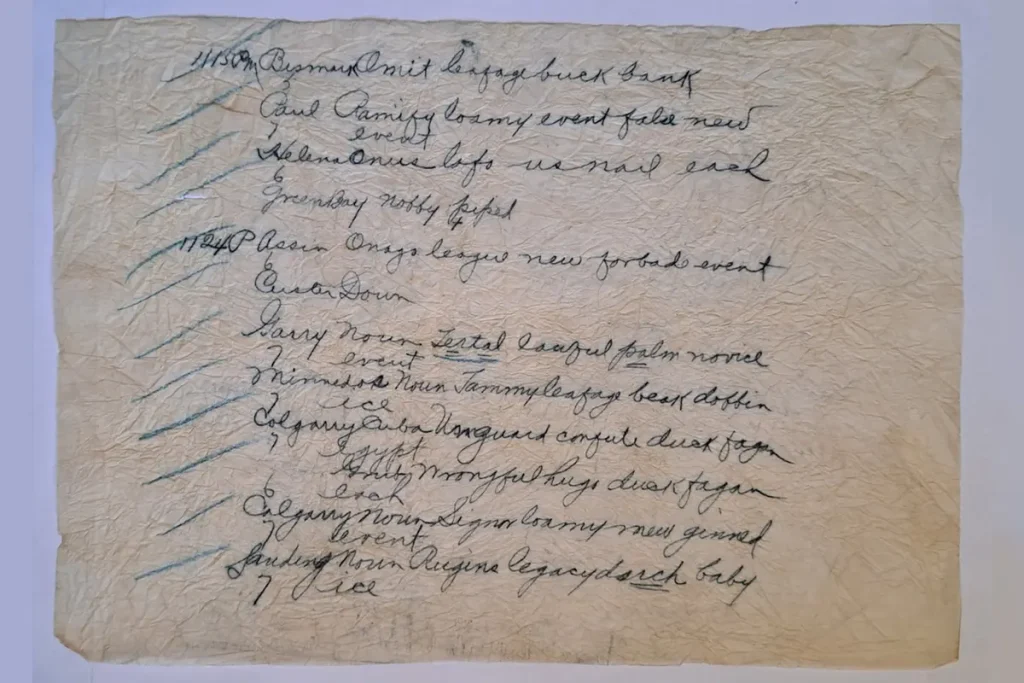 1115 Pm Bismark Omit leafage buck bank
6
Paul Ramify loamy event false new
7 event
Helena Onus lofo us nail each
6
Greenbay nobby piped
4
1124 P Assin Onago league new forbade event
6
Custer Down
Garry Noun Tertal lawful palm novice
7 event
Minnedos Noun Jammy leafage beak dobbin
7 ice
Calgarry Cuba Unguard confute duck fagan
7 Egypt
Wrongful hugo duck fagan
6 each
Calgarry Noun Signor loamy new ginned
7 event
Landing Noun Rugins legacy duch baby
7 ice